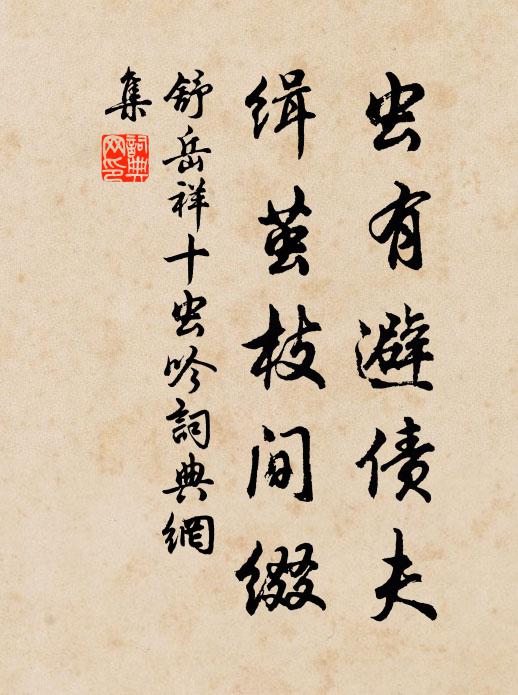 虫有避债夫
缉茧枝间缀
舒岳祥十虫吟詞典網
集
詞典網印